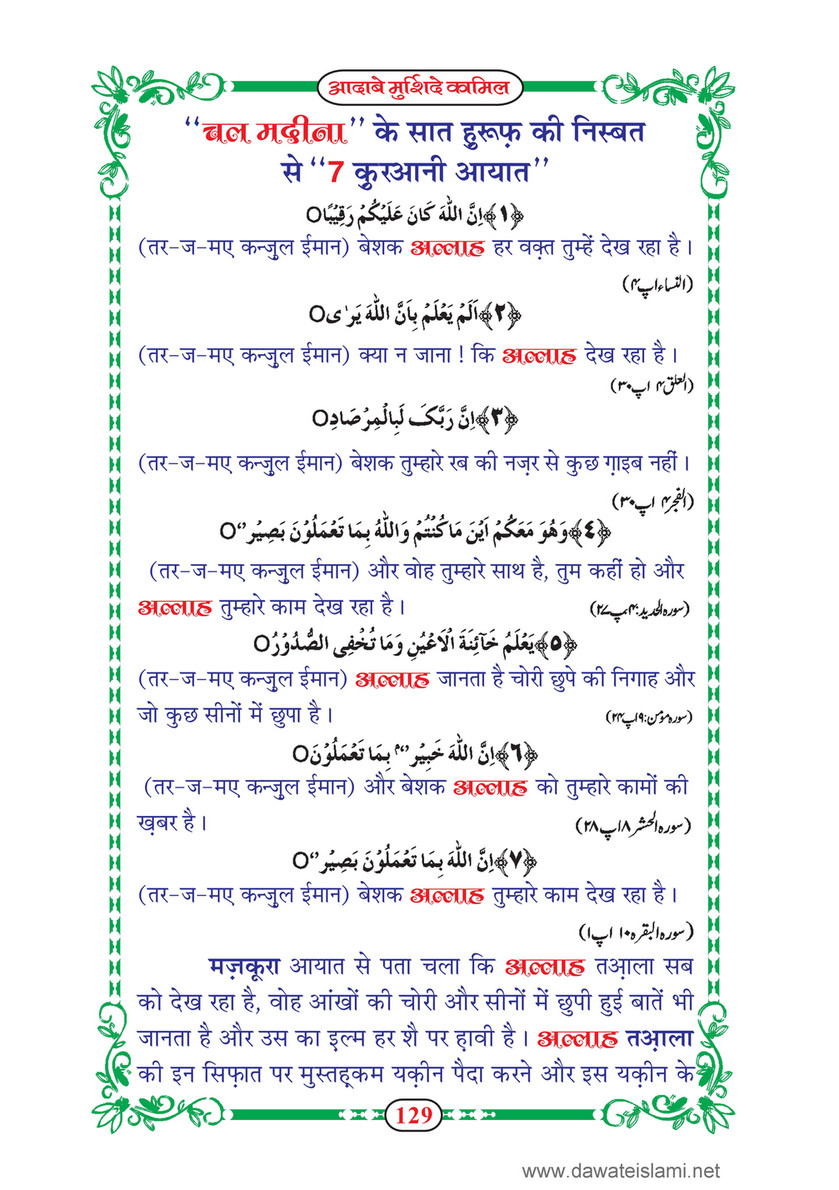 आदाबे मुर्शिदे कामिल
‘‘चल मदीना’’ के सात हुरूफ़ की निस्बत
से ‘‘7 कुरआनी आयात’’
﴿١﴾اِنَّ اللّٰهَ كَانَ عَلَيْكُمْ رَقِيْبًاO
(तर-ज-मए कन्ज़ुल ईमान) बेशक अल्लाह हर वक़्त तुम्हें देख रहा है।
(النساء اپ۴)
﴿٢﴾اَلَمْ يَعْلَمْ بِاَنَّ اللّٰهَ يَرٰىO
(तर-ज-मए कन्ज़ुल ईमान) क्या न जाना ! कि अल्लाह देख रहा है।
(العلق۴ اپ۳۰)
﴿٣﴾اِنَّ رَبَّكَ لَبِالْمِرْصَادِO
(तर-ज-मए कन्ज़ुल ईमान) बेशक तुम्हारे रब की नज़र से कुछ ग़ाइब नहीं।
(الفجر۴ اپ۳۰)
﴿٤﴾وَهُوَ مَعَكُمْ اَيْنَ مَا كُنْتُمْ وَاللّٰهُ بِمَا تَعْمَلُوْنَ بَصِيْرٌO
(तर-ज-मए कन्ज़ुल ईमान) और वोह तुम्हारे साथ है, तुम कहीं हो और
अल्लाह तुम्हारे काम देख रहा है। (سورہ الحدید:۴،پ۲۷)
﴿٥﴾يَعْلَمُ خَآئِنَةَ الْاَعْيُنِ وَمَا تُخْفِى الصُّدُوْرُO
(तर-ज-मए कन्ज़ुल ईमान) अल्लाह जानता है चोरी छुपे की निगाह और
जो कुछ सीनों में छुपा है। (سورہ مومن:۹اپ۲۴)
﴿٦﴾اِنَّ اللّٰهَ خَبِيْرٌۢ بِمَا تَعْمَلُوْنَO
(तर-ज-मए कन्ज़ुल ईमान) और बेशक अल्लाह को तुम्हारे कामों की
ख़बर है। (سورہ الحشر۸اپ۲۸)
﴿٧﴾اِنَّ اللّٰهَ بِمَا تَعْمَلُوْنَ بَصِيْرٌO
(तर-ज-मए कन्ज़ुल ईमान) बेशक अल्लाह तुम्हारे काम देख रहा है।
(سورہ البقرہ۱۰ اپ۱)
मज़्कूरा आयात से पता चला कि अल्लाह तआ़ला सब
को देख रहा है, वोह आंखों की चोरी और सीनों में छुपी हुई बातें भी
जानता है और उस का इल्म हर शै पर ह़ावी है। अल्लाह तआ़ला
की इन सिफ़ात पर मुस्तह़्कम यक़ीन पैदा करने और इस यक़ीन के
129
www.dawateislami.net